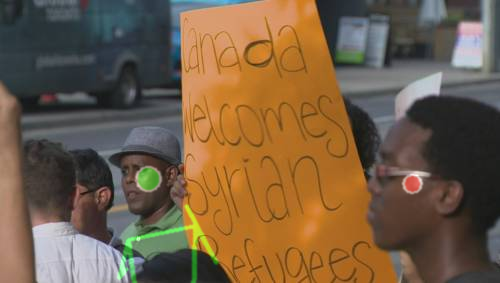 Canada
Welcomes
Syrian
Refugees